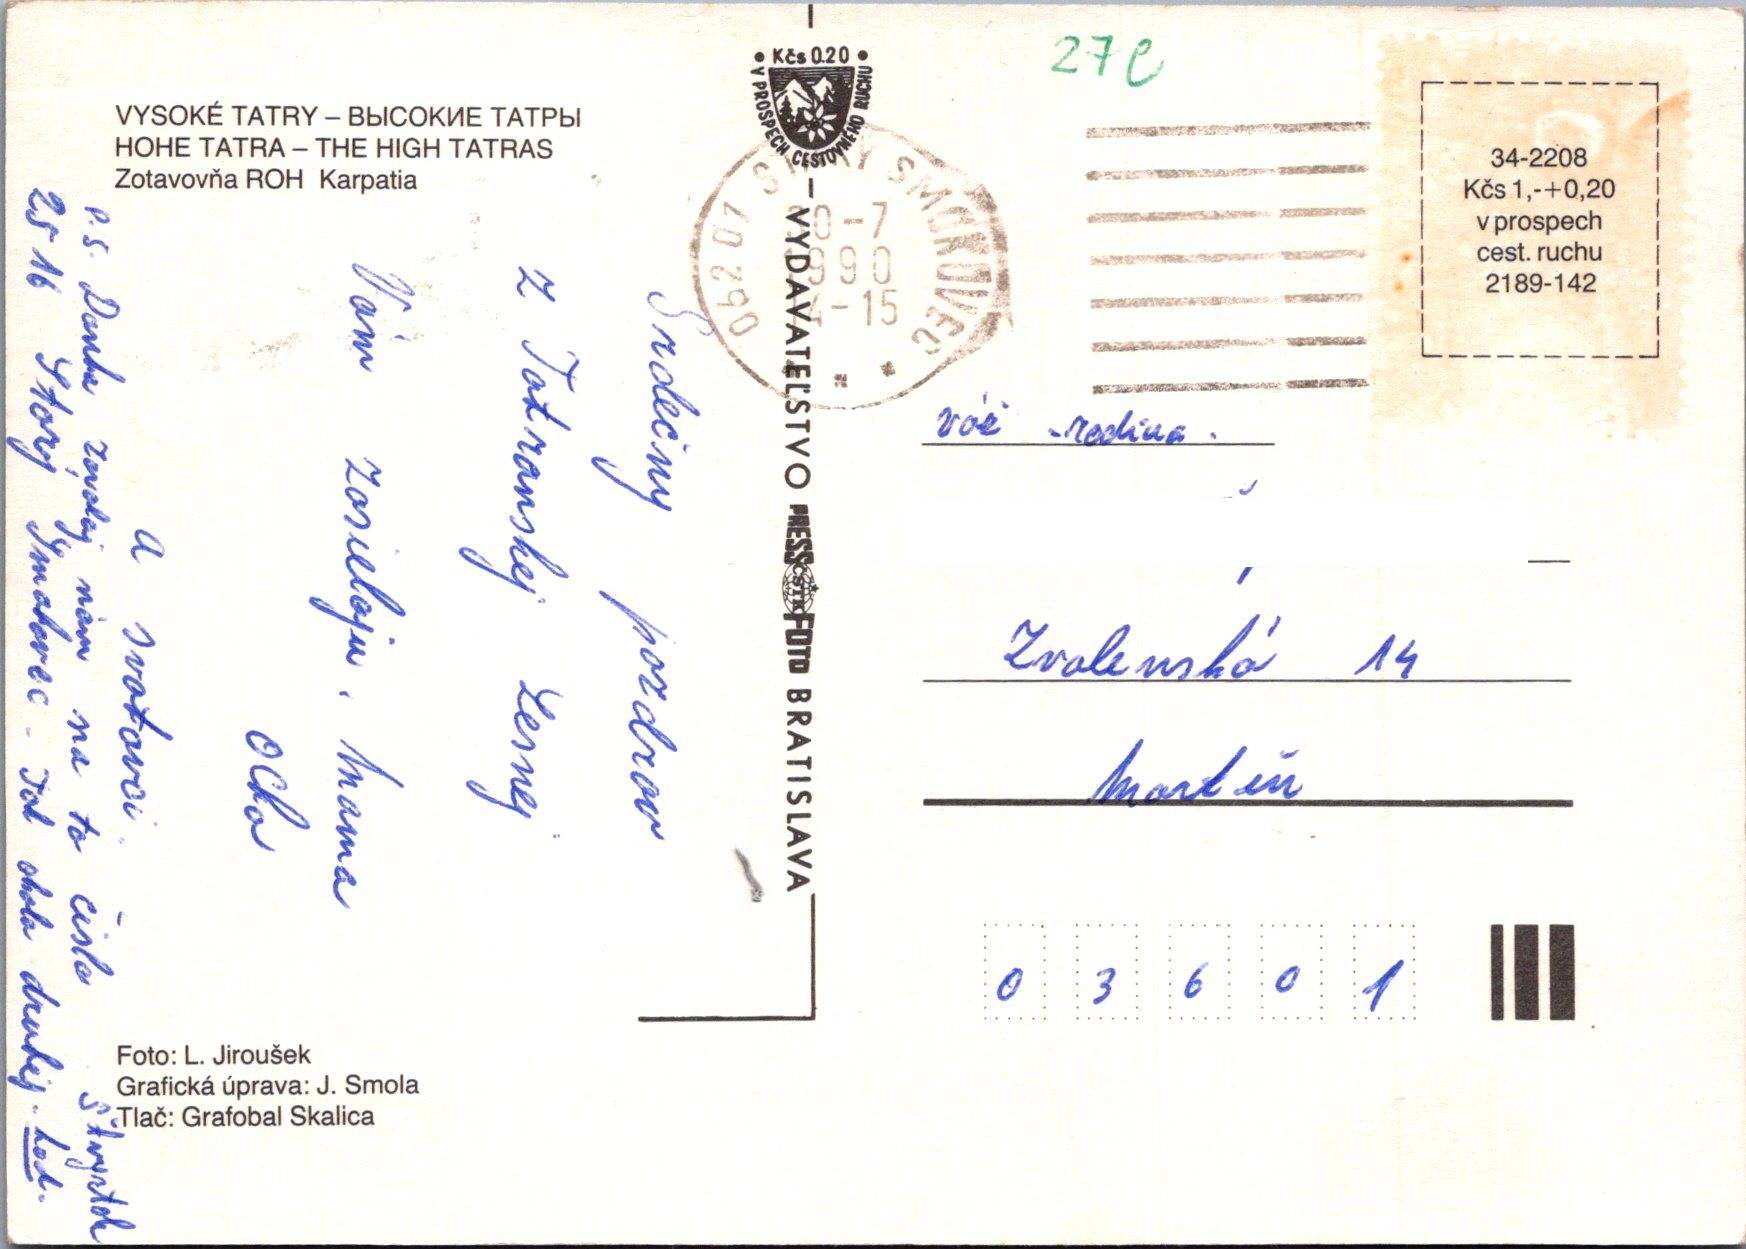 VYSOKÉ TATRY – ВЫСОКИЕ ТАТРЫ
HOHE TATRA – THE HIGH TATRAS
Zotavovňa ROH Karpatia
Srdečný pozdrav
z Tatranskej Lesnej
Vám zasielajú. Mama
Ocko
a svatovci.
P.S. Danka zavolaj nám na to číslo štvrtok
25 16 Starý Smokovec - Tak okolo druhej. hod.
Foto: L. Jiroušek
Grafická úprava: J. Smola
Tlač: Grafobal Skalica
Kčs 0.20
V PROSPECH CESTOVNÉHO RUCHU
VYDAVATEĽSTVO PRESSFOTO BRATISLAVA
ČSTK
062 07 STARÝ SMOKOVEC
9-7
990
-15
27
34-2208
Kčs 1,-+0,20
v prospech
cest. ruchu
2189-142
váž. rodina.
Zvolenská 14
Martin
0 3 6 0 1